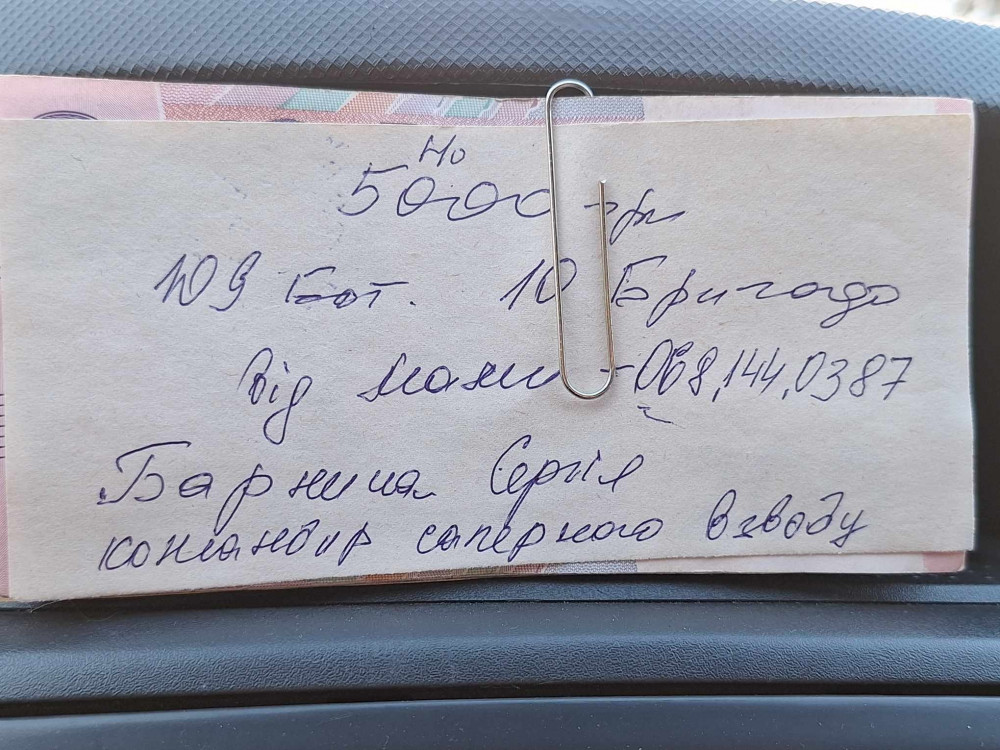 На
5000 грн
109 Бат. 10 Бригада
від мами - 068,144,0387
Сергія
командир саперного взводу